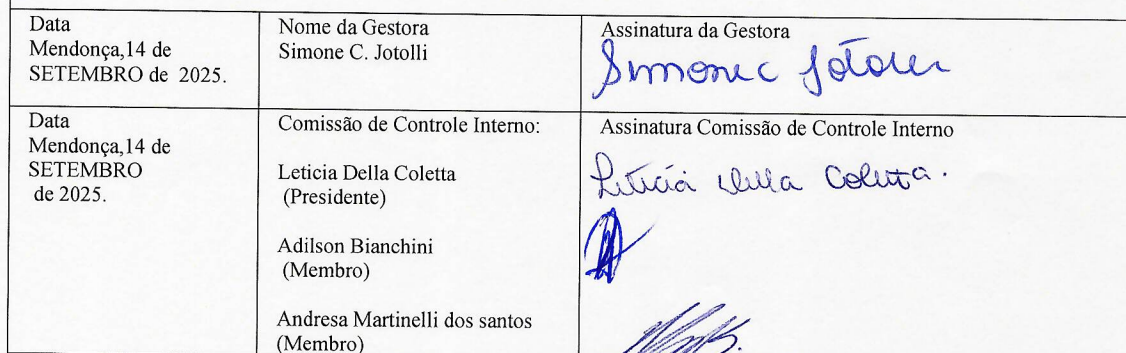 Data
Mendonça,14 de
SETEMBRO de 2025.
Nome da Gestora
Simone C. Jotolli
Assinatura da Gestora
Simone C Jotolli
Data
Mendonça,14 de
SETEMBRO
de 2025.
Comissão de Controle Interno:
Leticia Della Coletta
(Presidente)
Adilson Bianchini
(Membro)
Andresa Martinelli dos santos
(Membro)
Assinatura Comissão de Controle Interno
Letícia Della Coletta.